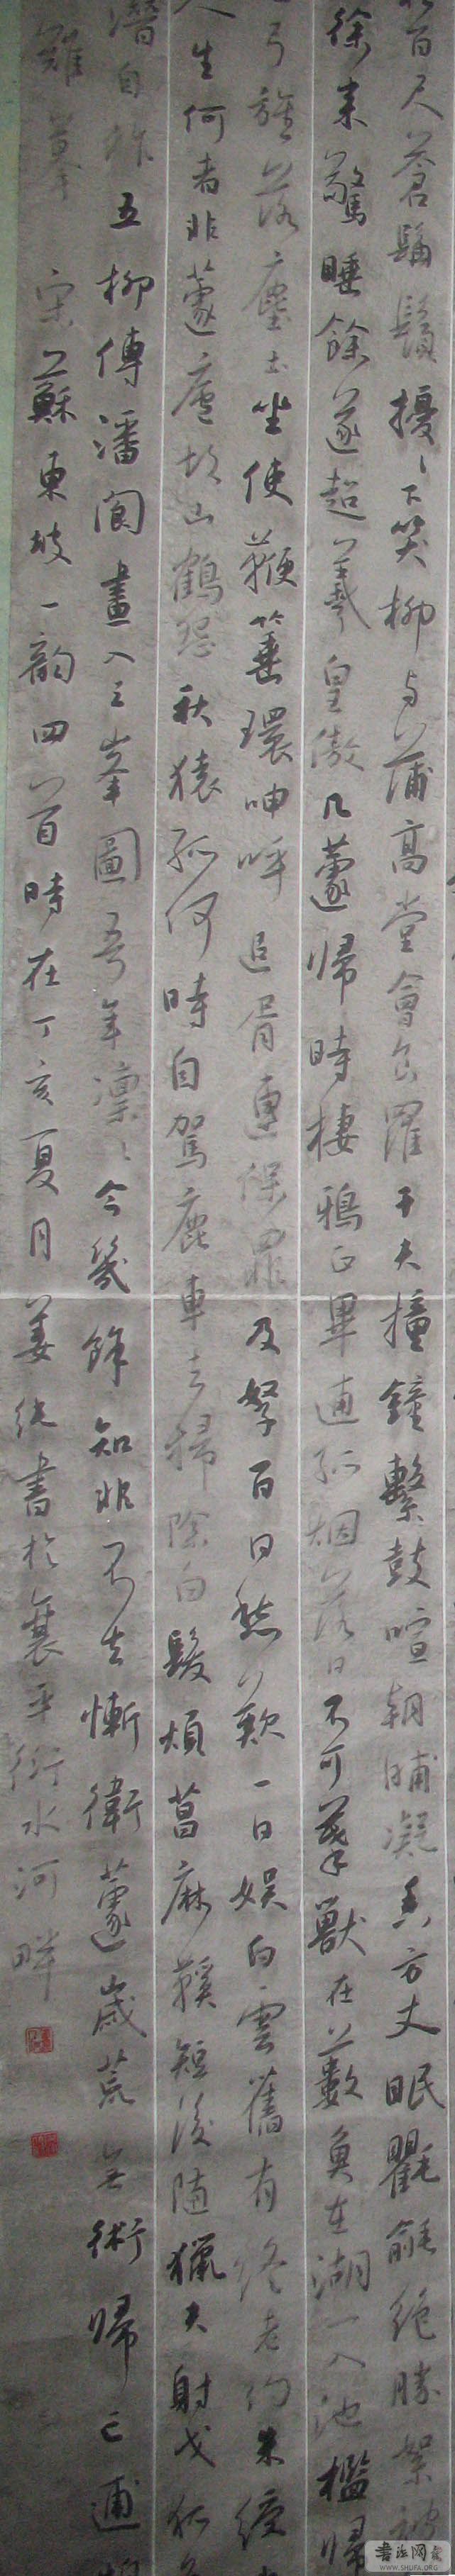 百尺蒼髯鬚擾〻下笑柳與蒲高堂會食羅千夫撞鐘擊鼓喧朝晡凝香方丈眠氍毹絕勝絮被
徐來驚睡餘遂超羲皇傲几蘧歸時棲鴉正畢逋孤烟落日不可摹獸在藪魚在湖一入池檻歸
弓旌落塵土坐使鞭箠環呻呼追胥連保罪及孥百日愁歎一日娛白雲舊有終老約朱綬
人生何者非蘧廬故山鶴怨秋猿孤何時自駕鹿車去掃除白髮煩菖蒲麻鞋短後隨獵夫射弋狐兔
潛自作五柳傳潘閬畫入三峯圖吾年凜〻今幾餘知非不去慚衛蘧歲荒無術歸亡逋
難摹 宋蘇東坡一韵四首時在丁亥夏月姜 書於襄平衍水河畔
書法网
WWW.SHUFA.ORG